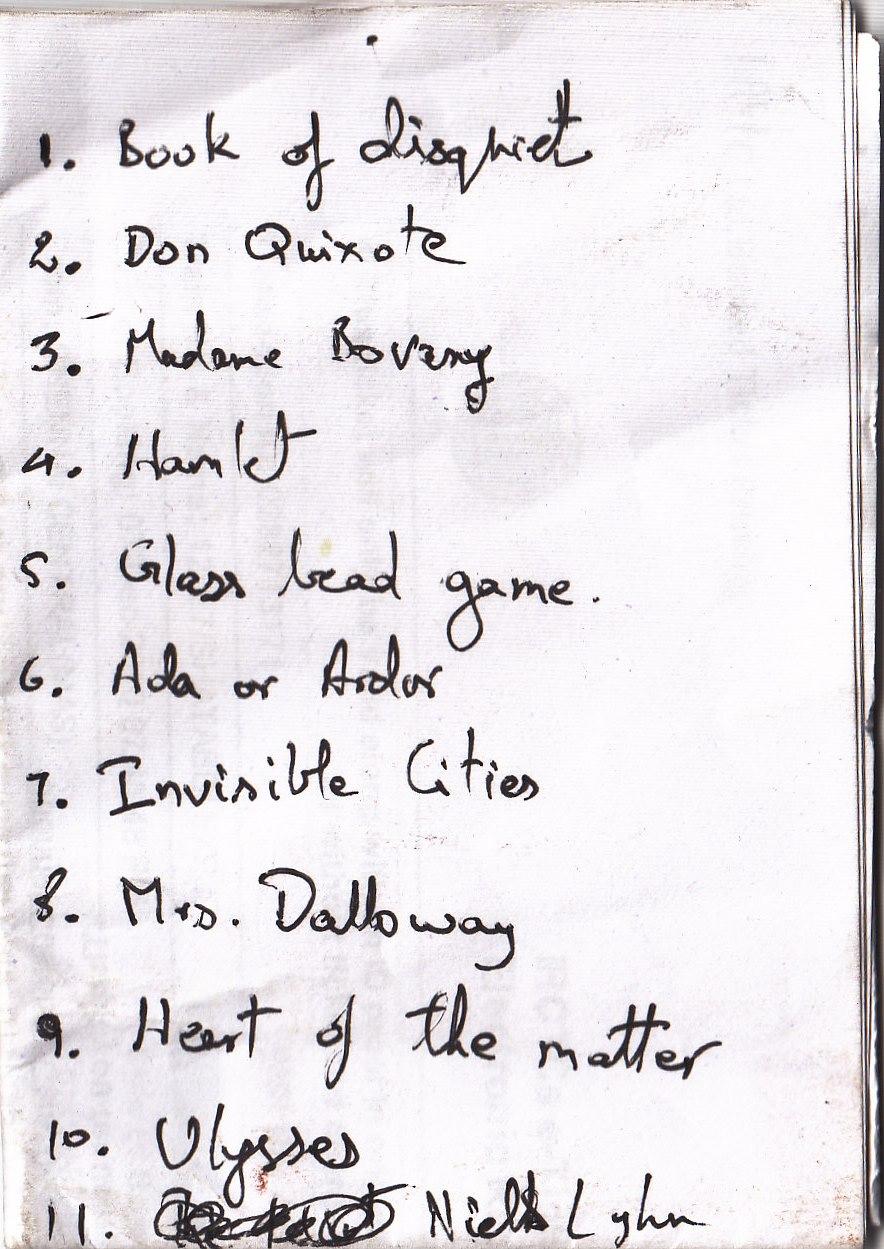 1. Book of disquiet
2. Don Quixote
3. Madame Bovary
4. Hamlet
5. Glass bead game.
6. Ada or Ardor
7. Invisible Cities
8. Mrs. Dalloway
9. Heart of the matter
10. Ulysses
11. Niels Lyhn